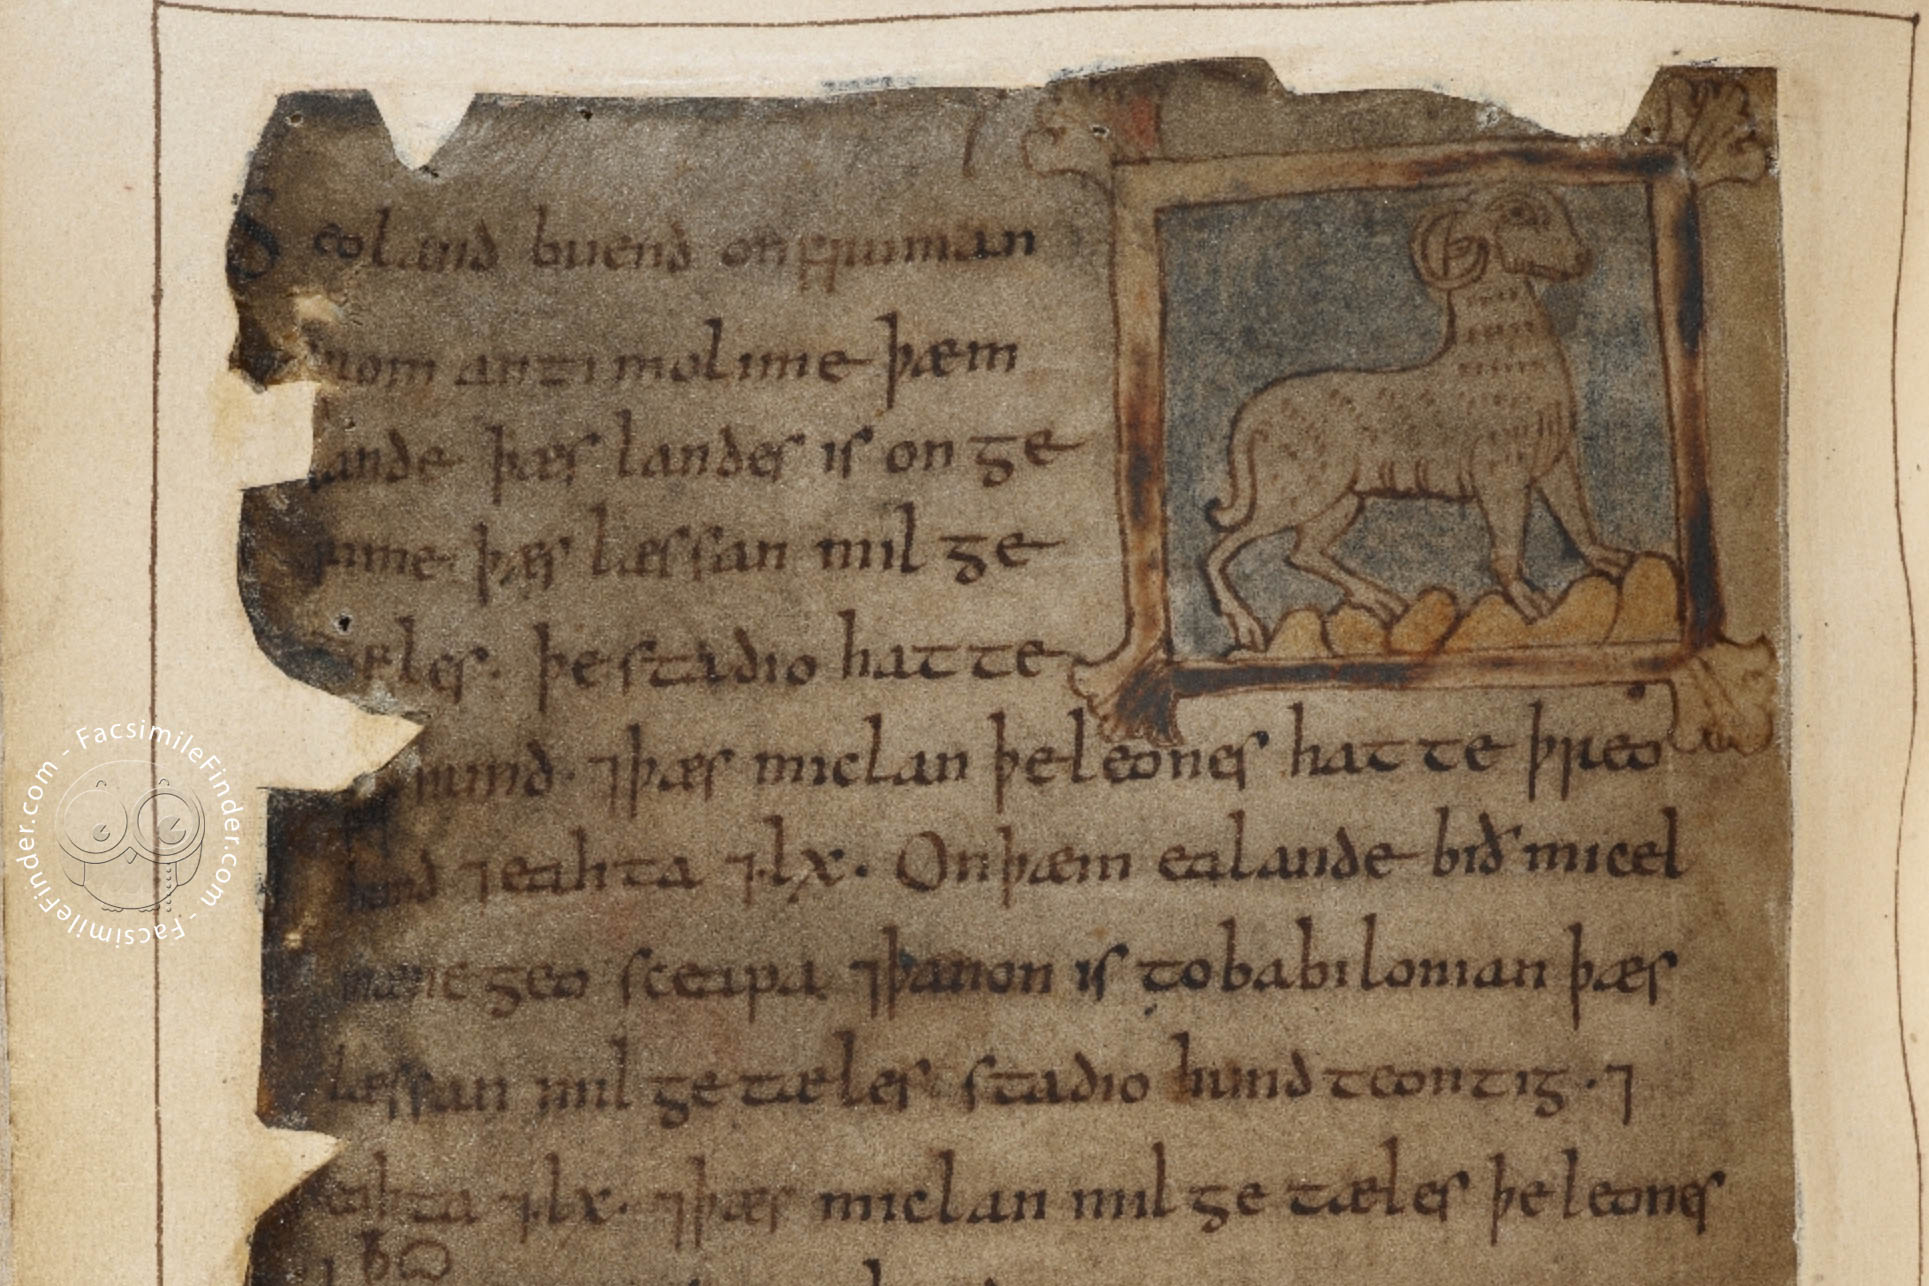 Seo land buend on fruman
from antimolime þæm
lande þæs landes is on ge
rime þæs læssan mil ge
tæles. þe stadio hatte
hund. ⁊ þæs miclan þe leones hatte þreo
hund ⁊ eahta ⁊ .lx. On þæm ealande bið micel
mænegeo sceapa ⁊ þanon is to babilonian þæs
læssan mil getæles stadio hund teontig. ⁊
eahta ⁊ .lx. ⁊ þæs miclan mil getæles þe leones
FacsimileFinder.com - FacsimileFinder.com -